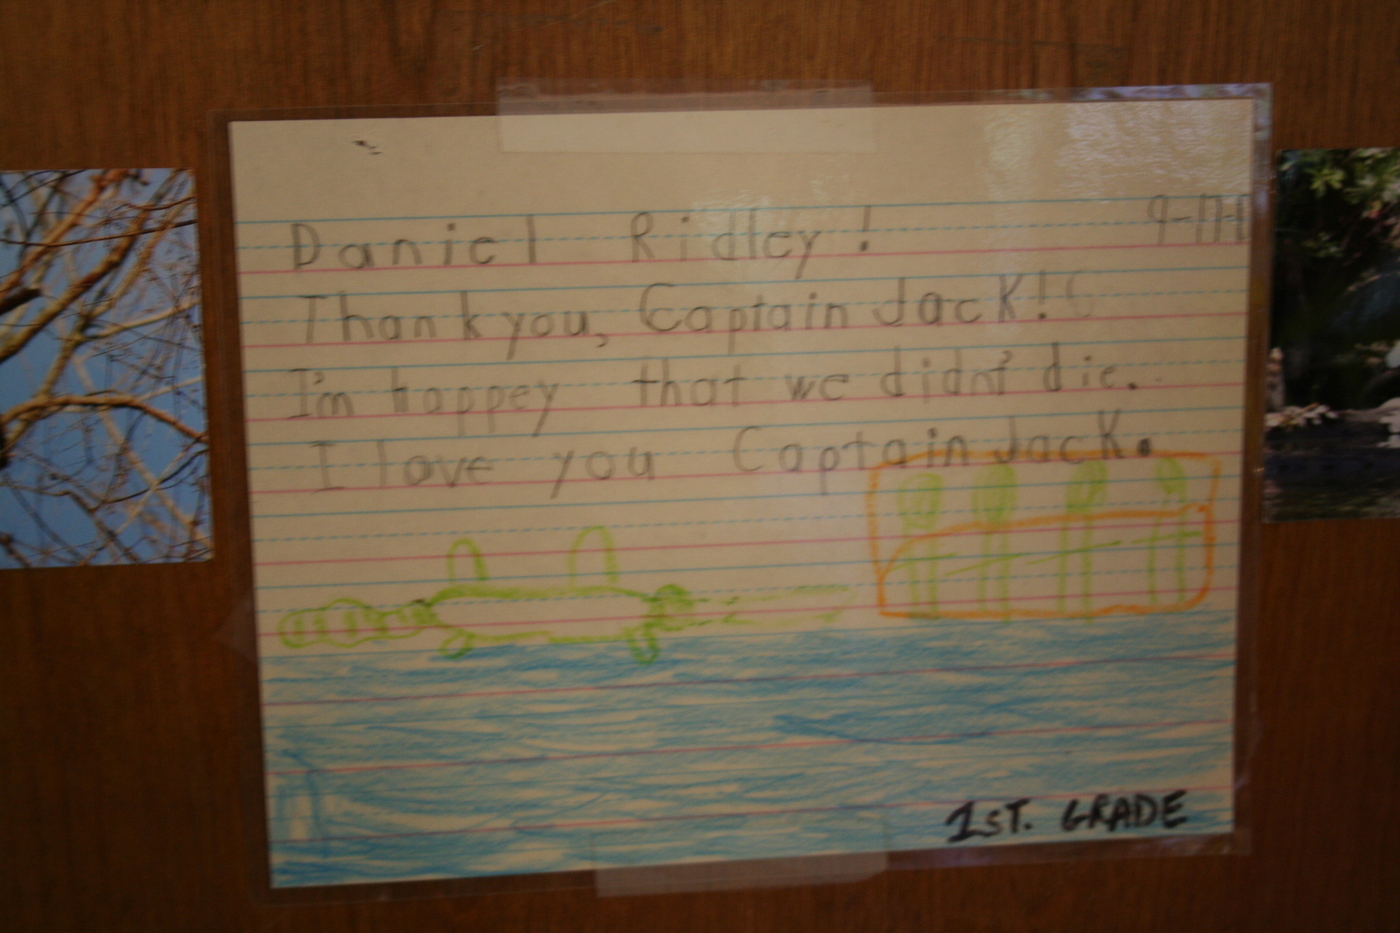 Daniel Ridley!
Thank you, Captain Jack!
I'm happey that we didn't die.
I love you Captain Jack.
1ST. GRADE